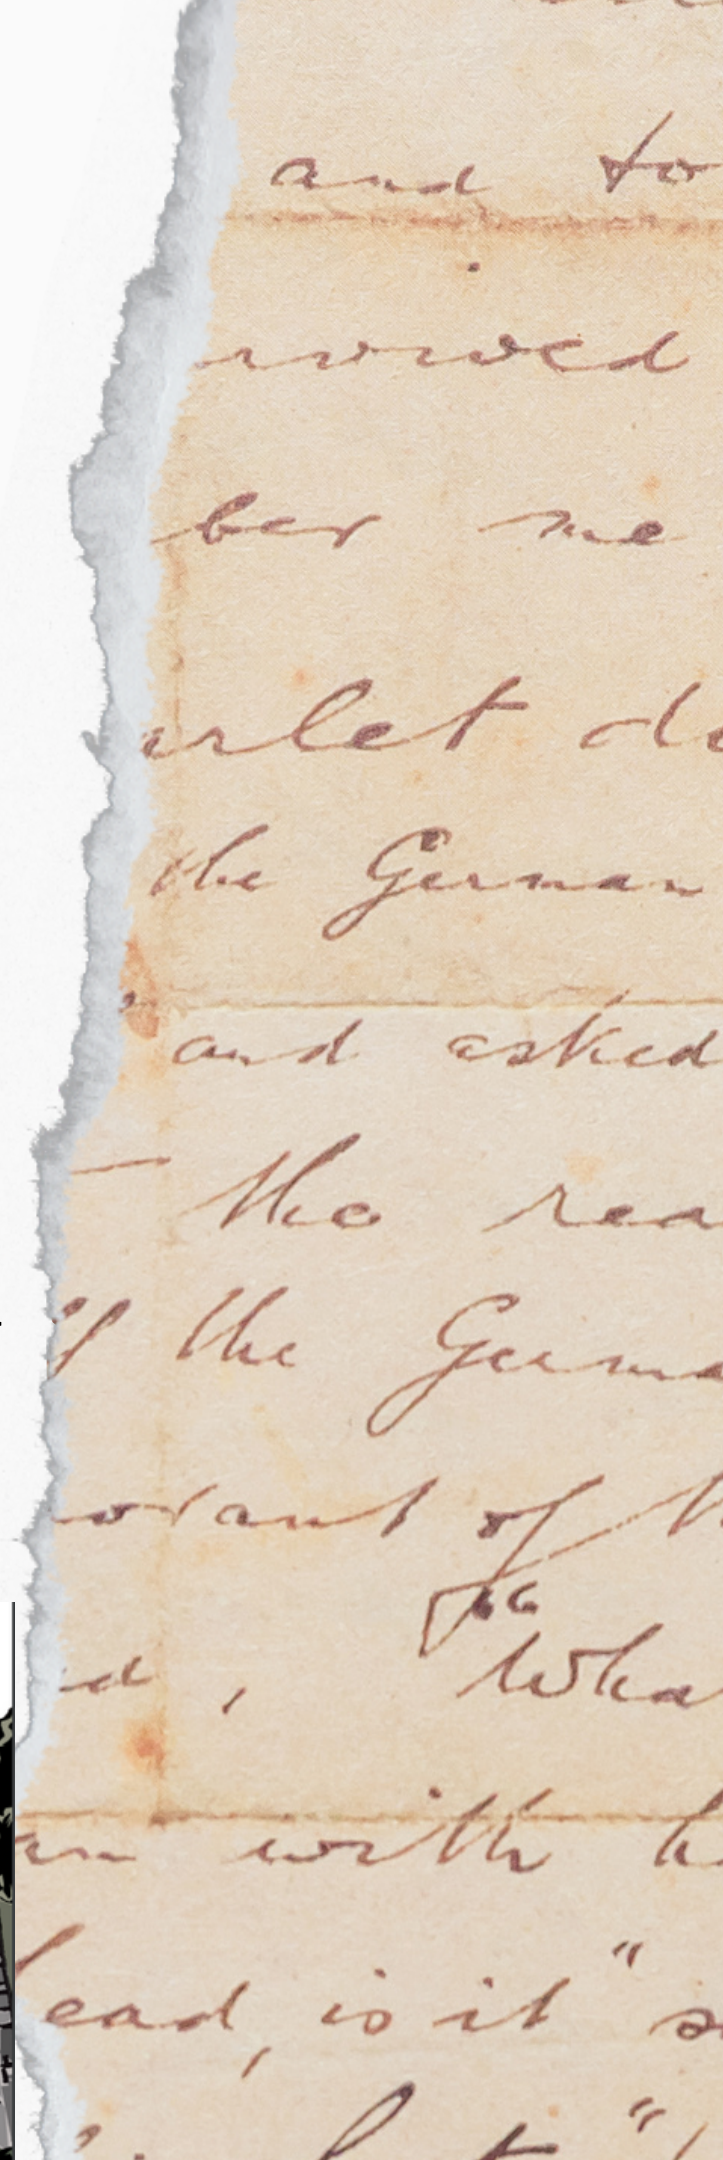 and to
rrived
ber me
arlet do
the German
and asked
the rea
of the Germa
norant of th
ed, "Wha
an with h
head, is it" s